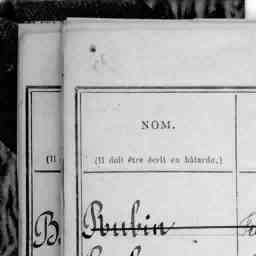 NOM.
(Il doit être écrit en bâtarde.)
(Il
B.
Rubin